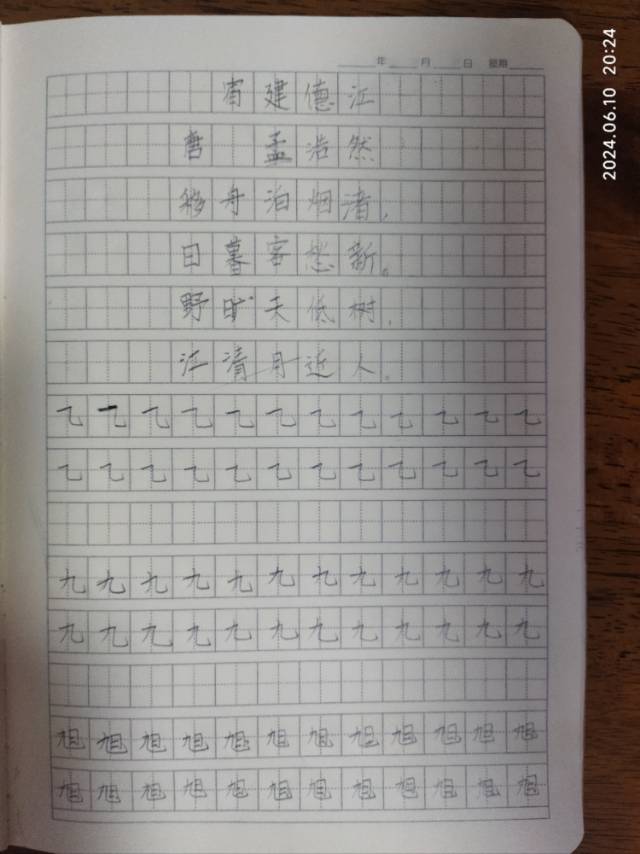 年 月 日 星期
宿建德江
唐 孟浩然
移舟泊烟渚,
日暮客愁新。
野旷天低树,
江清月近人。
乙乙乙乙乙乙乙乙乙乙乙乙
乙乙乙乙乙乙乙乙乙乙乙乙
九九九九九九九九九九九九
九九九九九九九九九九九九
旭旭旭旭旭旭旭旭旭旭旭旭
旭旭旭旭旭旭旭旭旭旭旭旭
2024.06.10 20:24